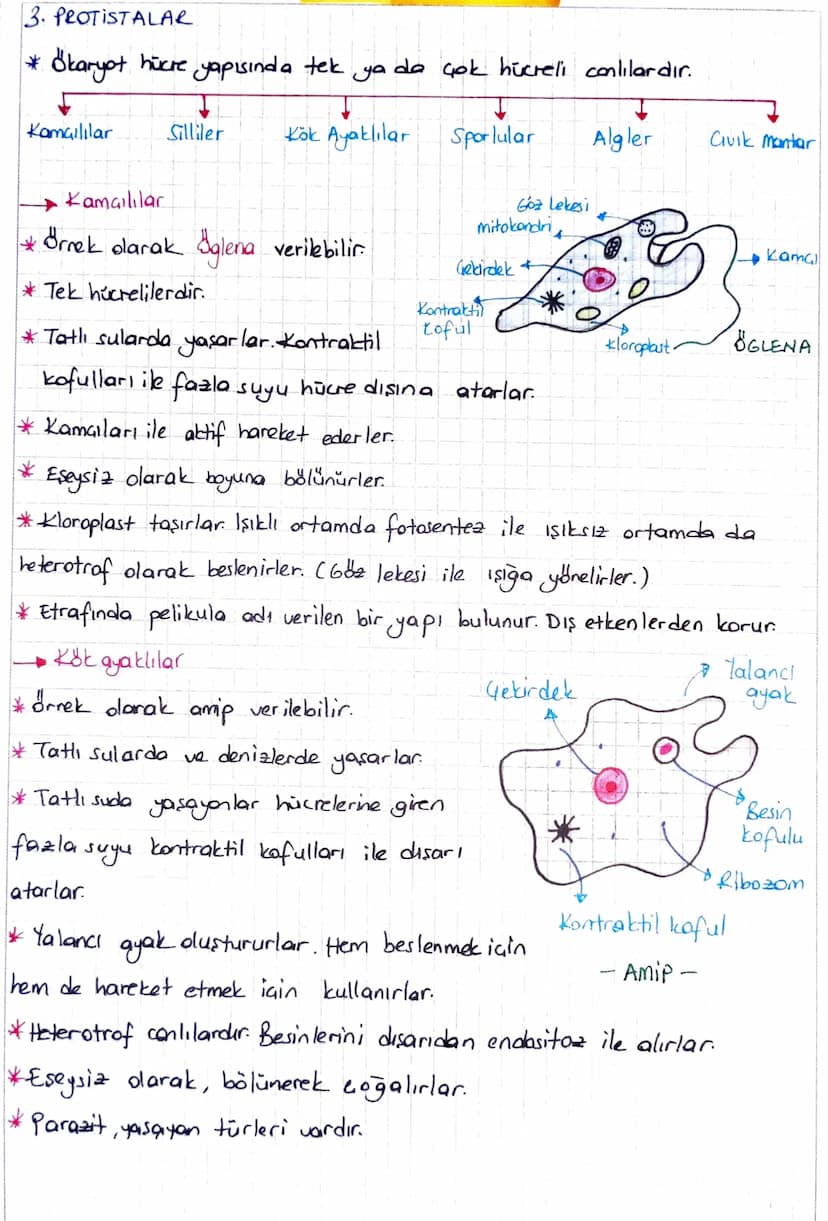 3. PROTİSTALAR
* Ökaryot hücre yapısında tek ya da çok hücreli canlılardır.
Kamçılılar Silliler Kök Ayaklılar Sporlular Algler Cıvık Mantar
→ Kamçılılar
* Örnek olarak Öglena verilebilir.
* Tek hücrelilerdir.
* Tatlı sularda yaşarlar. Kontraktil
kofulları ile fazla suyu hücre dışına atarlar.
Göz lekesi
mitokondri
Çekirdek
Kontraktil
koful
Kloroplast
Kamçı
ÖGLENA
* Kamçıları ile aktif hareket ederler.
* Eşeysiz olarak boyuna bölünürler.
* Kloroplast taşırlar. Işıklı ortamda fotosentez ile ışıksız ortamda da
heterotrof olarak beslenirler. (Göz lekesi ile ışığa yönelirler.)
* Etrafında pelikula adı verilen bir yapı bulunur. Dış etkenlerden korur.
→ Kök ayaklılar
* Örnek olarak amip verilebilir.
* Tatlı sularda ve denizlerde yaşarlar.
* Tatlı suda yaşayanlar hücrelerine giren
fazla suyu kontraktil kofulları ile dışarı
atarlar.
Çekirdek
Yalancı
ayak
Besin
kofulu
Ribozom
Kontraktil koful
- AMİP -
* Yalancı ayak oluştururlar. Hem beslenmek için
hem de hareket etmek için kullanırlar.
* Heterotrof canlılardır. Besinlerini dışarıdan endositoz ile alırlar.
* Eşeysiz olarak, bölünerek çoğalırlar.
* Parazit, yaşayan türleri vardır.